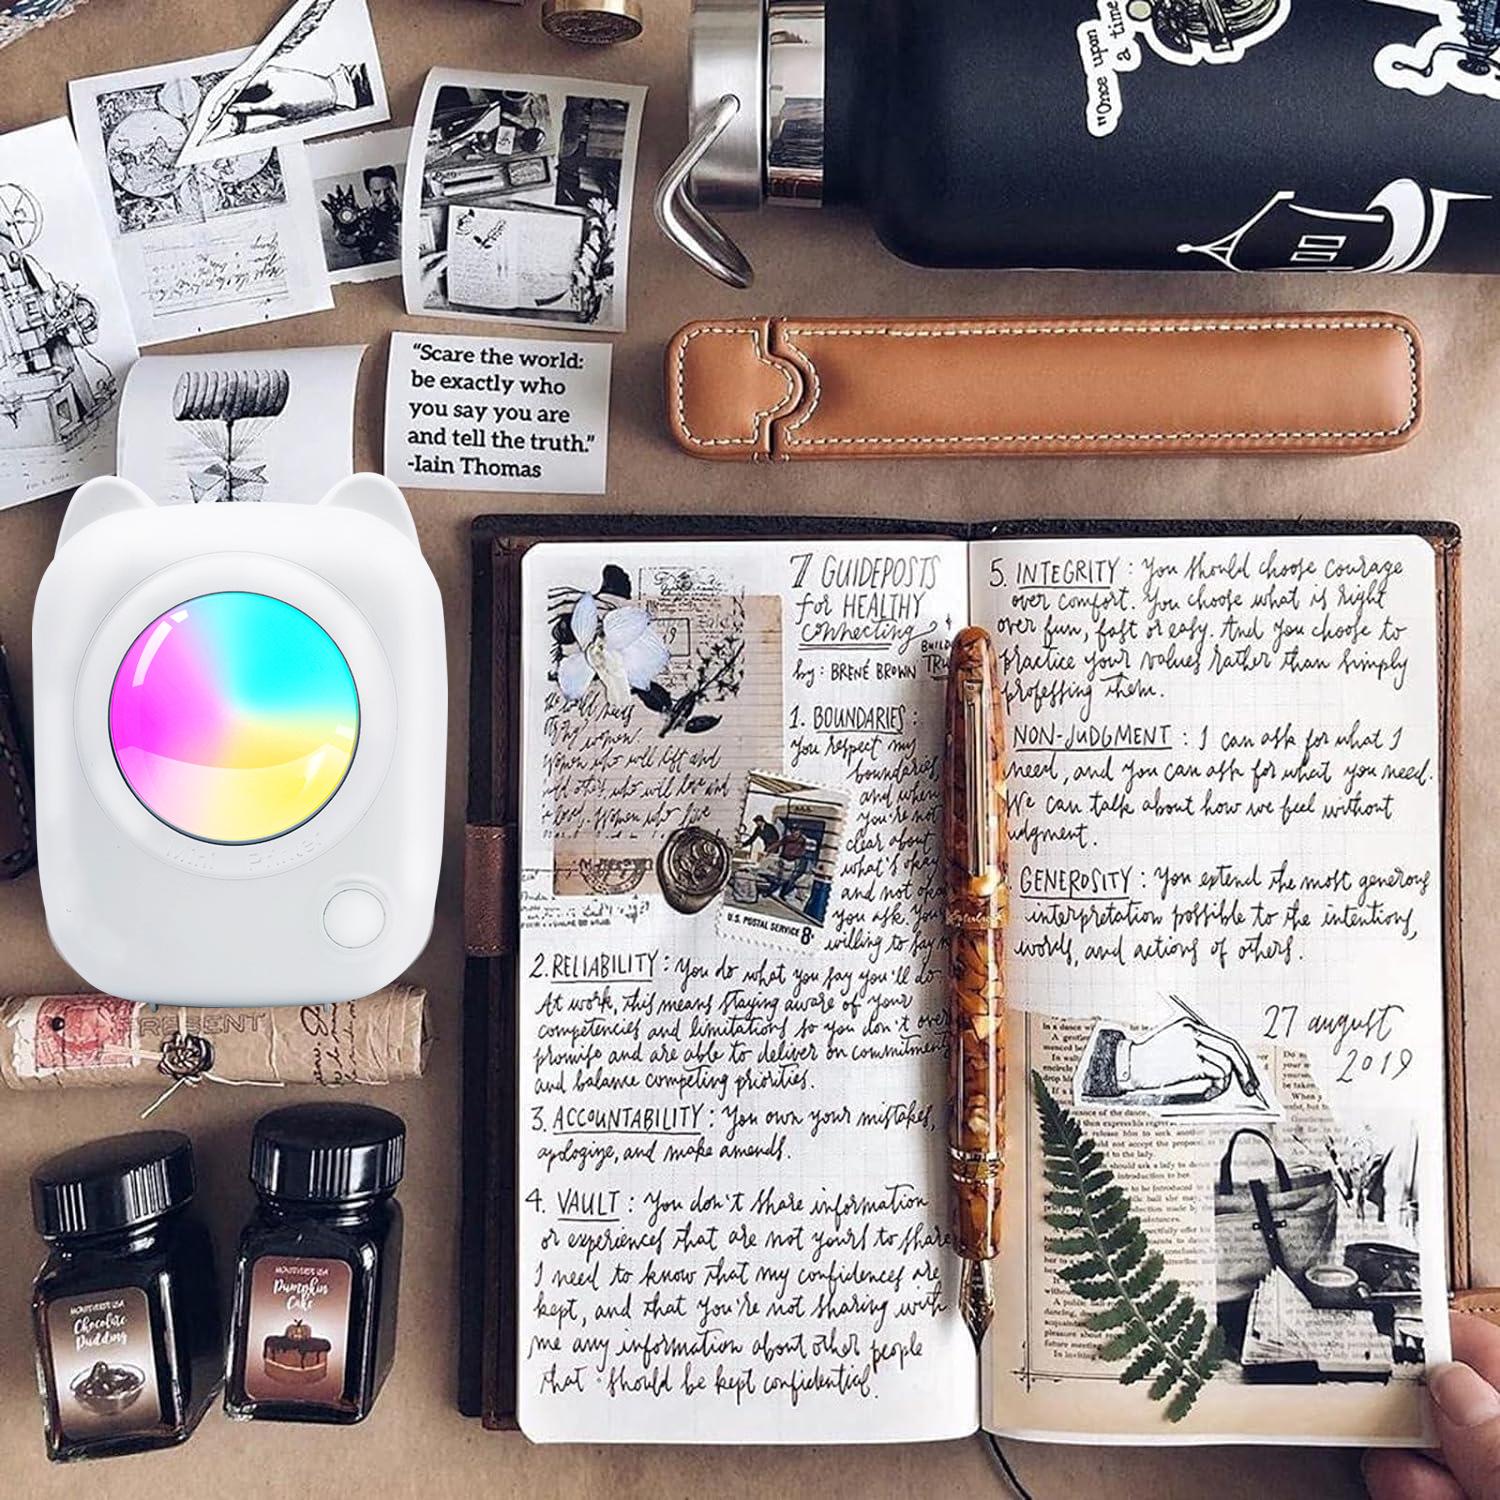 "Once upon
a time
"Scare the world:
be exactly who
you say you are
and tell the truth."
-Iain Thomas
Mini Printer
PRESENT
MONTEVERDE USA
Chocolate
Pudding
MONTEVERDE USA
Pumpkin
Cake
7 GUIDEPOSTS
for HEALTHY
connecting
BUILD
TRU
by: BRENÉ BROWN
women who will lift and
women who live
U.S. POSTAL SERVICE 8¢
1. BOUNDARIES:
you respect my
boundaries,
and when
you're not
clear about
what's okay
and not okay
you ask. You're
willing to say n
2. RELIABILITY: you do what you say you'll do.
At work, this means staying aware of your
competencies and limitations so you don't over
promise and are able to deliver on commitments
and balance competing priorities.
3. ACCOUNTABILITY: you own your mistakes,
apologize, and make amends.
4. VAULT: you don't share information
or experiences that are not yours to share
I need to know that my confidences are
kept, and that you're not sharing with
me any information about other people
that should be kept confidential.
5. INTEGRITY: you should choose courage
over comfort. you choose what is right
over fun, fast or easy. And you choose to
practice your values rather than simply
professing them.
NON-JUDGMENT: I can ask for what I
need, and you can ask for what you need.
We can talk about how we feel without
judgment.
GENEROSITY: you extend the most generous
interpretation possible to the intentions,
words, and actions of others.
27 august
2019